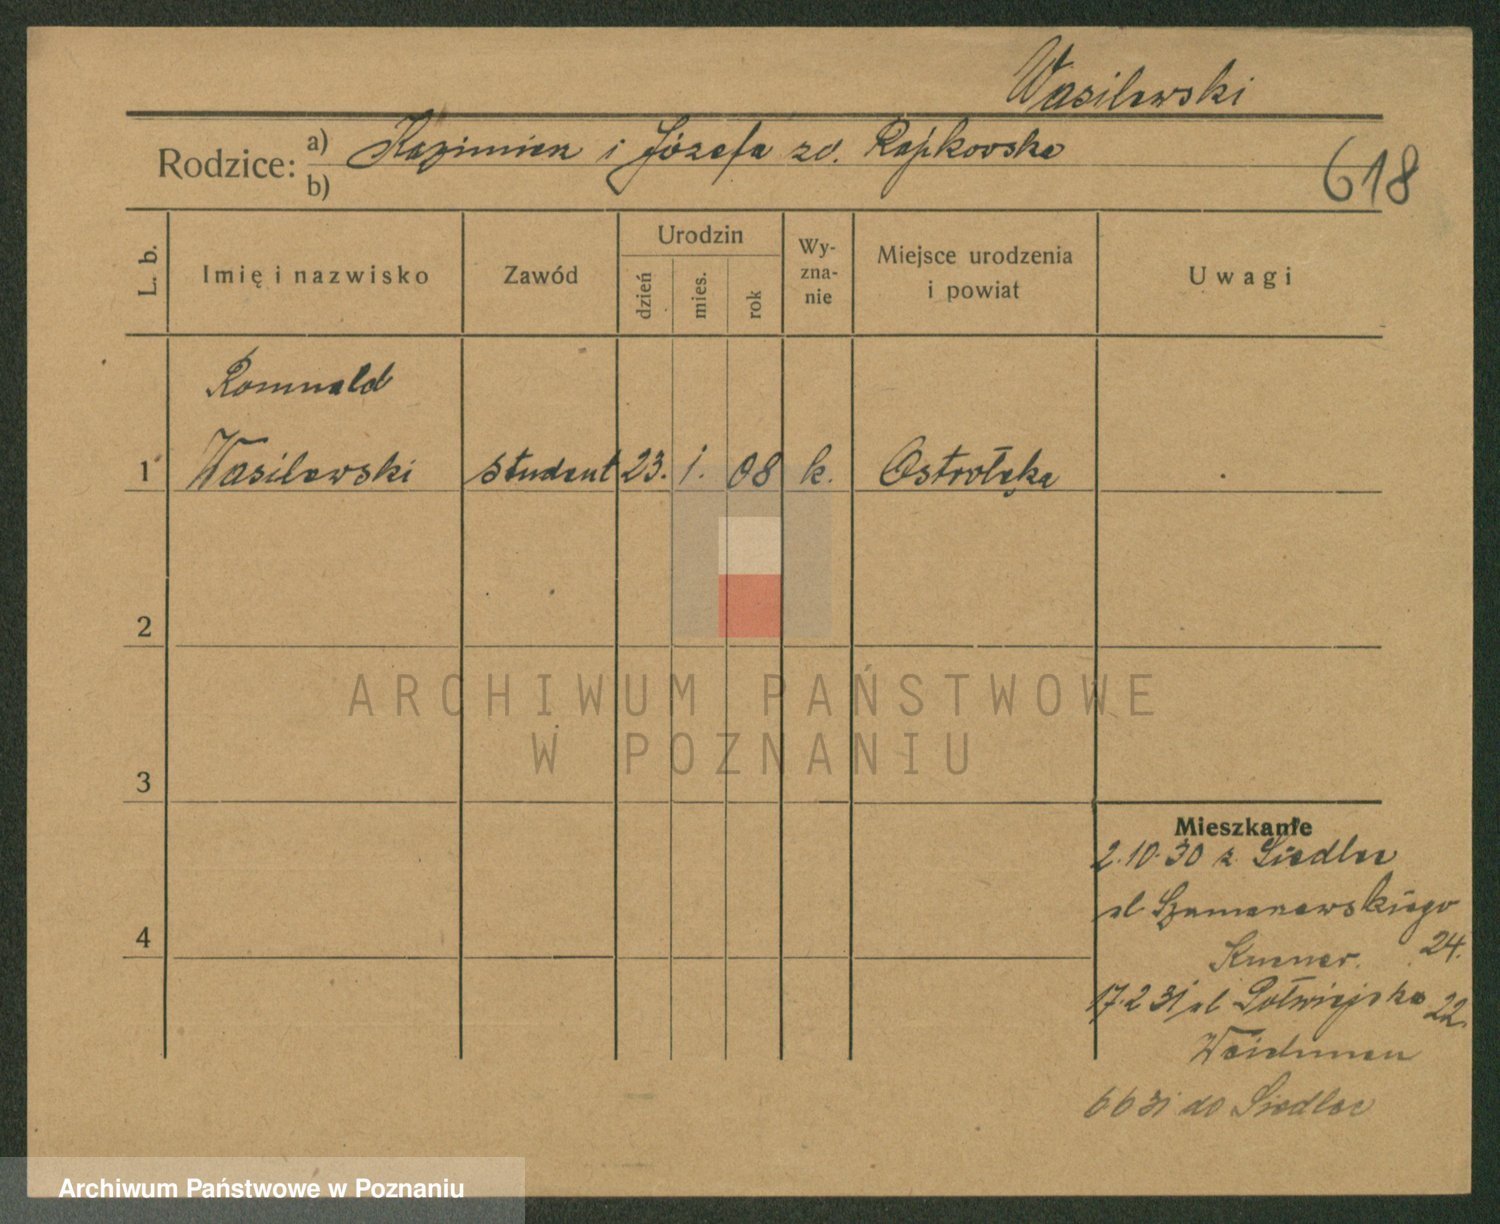 Wasilewski
Rodzice: a) Kazimierz i Józefa zd. Rapkowska
b)
618
L. b. Imię i nazwisko Zawód Urodzin dzień mies. rok Wy-zna-nie Miejsce urodzenia i powiat Uwagi
Romuald
1 Wasilewski student 23. 1. 08 k. Ostrołęka
2
3
4
ARCHIWUM PAŃSTWOWE
W POZNANIU
Mieszkanie
2.10.30 z Siedlec
ul Szamarzewskiego
24.
17.2 31 ul Półwiejska 22.
6 6 31 do Siedlec
Archiwum Państwowe w Poznaniu